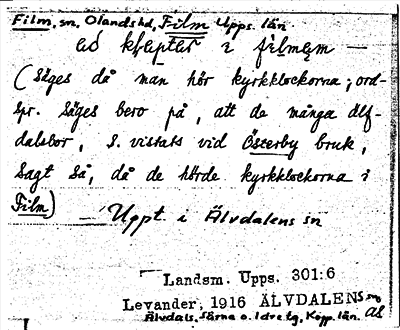 Film, sn, Olands hd, Film Upps. län
ed kłeptəs i fílmęm —
(Säges då man hör kyrkklockorna; ord-
spr. Säges bero på, att de många älf-
dalsbor, s. vistats vid Österby bruk,
sagt så, då de hörde kyrkklockorna i
Film) — Uppt. i Älvdalens sn
Landsm. Upps. 301:6
Levander, 1916 ÄLVDALENS sn
Älvdals, Särna o. Idre tg, Kopp. län.